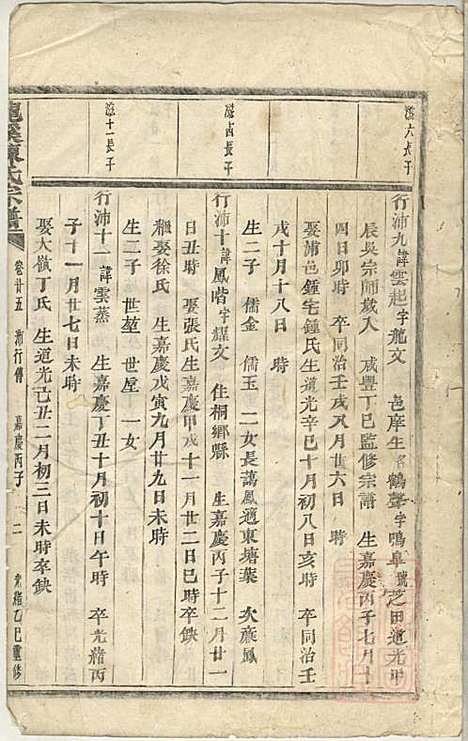 行沛九 諱雲起 字龍文 邑庠生 名鶴聲 字鳴臯 號芝田 道光甲
辰吳宗師歲入 咸豐丁巳監修宗譜 生嘉慶丙子七月十
四日卯時 卒同治壬戌八月廿六日 時
娶浦邑鍾宅鍾氏 生道光辛巳十月初八日亥時 卒同治壬
戌十月十八日 時
生二子 儒金 儒玉 二女 長藹鳳適東塘葉 次蔟鳳
行沛十 諱鳳喈 字耀文 住桐鄉縣 生嘉慶丙子十二月廿一
日丑時 娶張氏 生嘉慶甲戌十一月廿二日巳時 卒缺
繼娶徐氏 生嘉慶戊寅九月廿九日未時
生二子 世堃 世屋 一女
行沛十一 諱雲蒸 生嘉慶丁丑十月初十日午時 卒光緒丙
子十一月廿七日未時
娶大嶺丁氏 生道光己丑二月初三日未時 卒缺
龍溪陳氏宗譜
卷廿五 沛行傳 嘉慶丙子 二 光緒乙巳重修